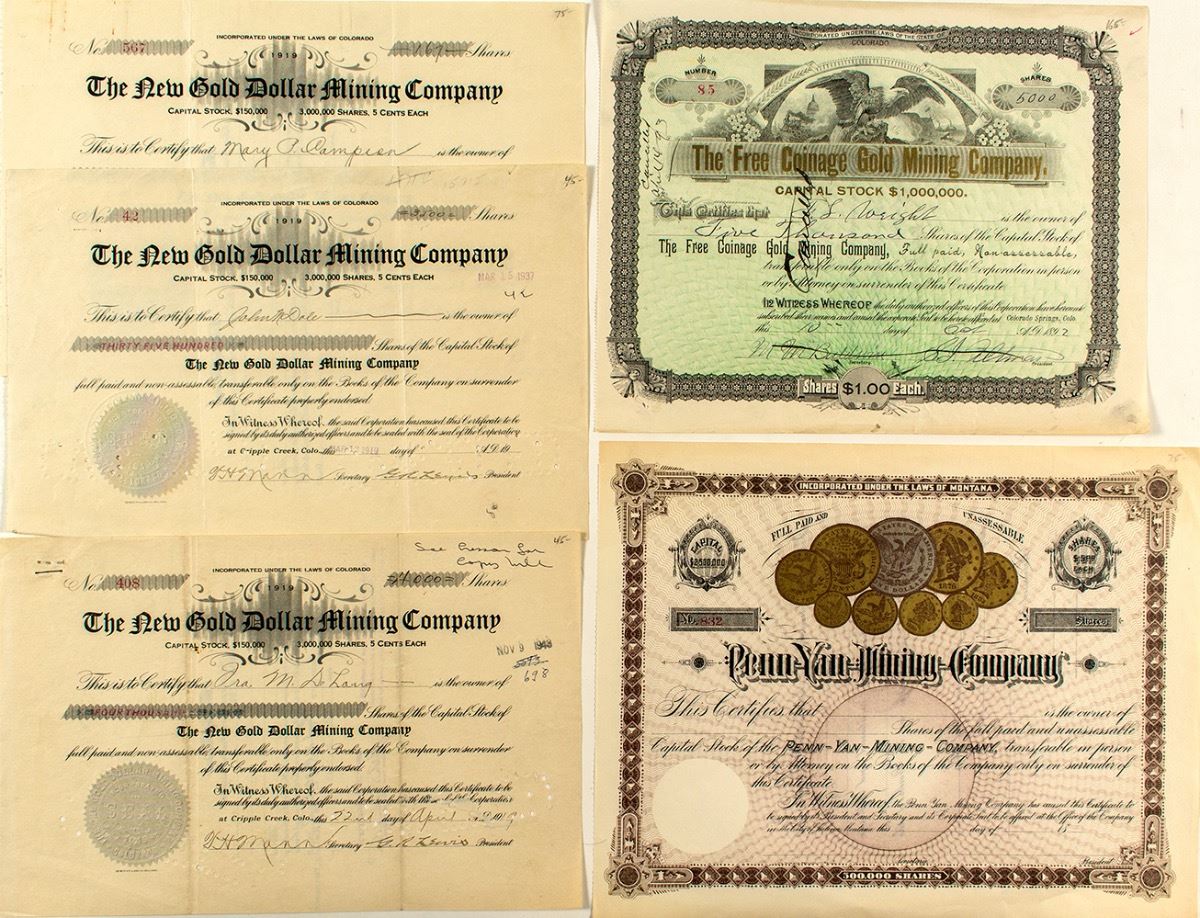 75-
INCORPORATED UNDER THE LAWS OF COLORADO
No. 567 1919 Shares
The New Gold Dollar Mining Company
CAPITAL STOCK, $150,000 3,000,000 SHARES, 5 CENTS EACH
This is to Certify that Mary P. Campion is the owner of
45-
INCORPORATED UNDER THE LAWS OF COLORADO
No. 42 1919 Shares
The New Gold Dollar Mining Company
CAPITAL STOCK, $150,000 3,000,000 SHARES, 5 CENTS EACH
MAR 15 1937
42
This is to Certify that John H. Dole is the owner of
THIRTY FIVE HUNDRED Shares of the Capital Stock of
The New Gold Dollar Mining Company
full paid and non-assessable, transferable only on the Books of the Company on surrender
of this Certificate properly endorsed.
In Witness Whereof, the said Corporation has caused this Certificate to be
signed by its duly authorized officers and to be sealed with the seal of the Corporation
at Cripple Creek, Colo., this day of A.D. 19
Secretary G.R. Lewis President
45-
INCORPORATED UNDER THE LAWS OF COLORADO
No. 408 1919 4,000 Shares
The New Gold Dollar Mining Company
CAPITAL STOCK, $150,000 3,000,000 SHARES, 5 CENTS EACH
NOV 9 1943
698
This is to Certify that Ira M. DeLong is the owner of
FOUR THOUSAND Shares of the Capital Stock of
The New Gold Dollar Mining Company
full paid and non-assessable, transferable only on the Books of the Company on surrender
of this Certificate properly endorsed.
In Witness Whereof, the said Corporation has caused this Certificate to be
signed by its duly authorized officers and to be sealed with the seal of the Corporation
at Cripple Creek, Colo., this 22nd day of April A.D. 1919
Secretary G.R. Lewis President
165-
INCORPORATED UNDER THE LAWS OF THE STATE OF
COLORADO
NUMBER
85
SHARES
5000
The Free Coinage Gold Mining Company.
CAPITAL STOCK $1,000,000.
Cancelled
This Certifies that Wright is the owner of
Five Thousand Shares of the Capital Stock of
The Free Coinage Gold Mining Company, Full paid, Non assessable,
transferable only on the Books of the Corporation in person
or by Attorney on surrender of this Certificate
In Witness Whereof the duly authorized officers of this Corporation have hereunto
subscribed their names and caused the corporate Seal to be hereto affixed at Colorado Springs, Colo.
this 10 day of Oct A.D. 1892
Secretary President
Shares $1.00 Each.
75-
INCORPORATED UNDER THE LAWS OF MONTANA
FULL PAID AND UNASSESSABLE
CAPITAL
SHARES
No. 832 Shares
Penn-Yan-Mining-Company
This Certifies that is the owner of
Shares of the full paid and unassessable
Capital Stock of the PENN-YAN-MINING-COMPANY, transferable in person
or by Attorney on the Books of the Company only on surrender of
this Certificate.
In Witness Whereof, the Penn Yan Mining Company has caused this Certificate to
be signed by its President and Secretary and its Corporate Seal to be affixed at the Office of the Company
in the City of Helena Montana this day of 18
Secretary President
500,000 SHARES